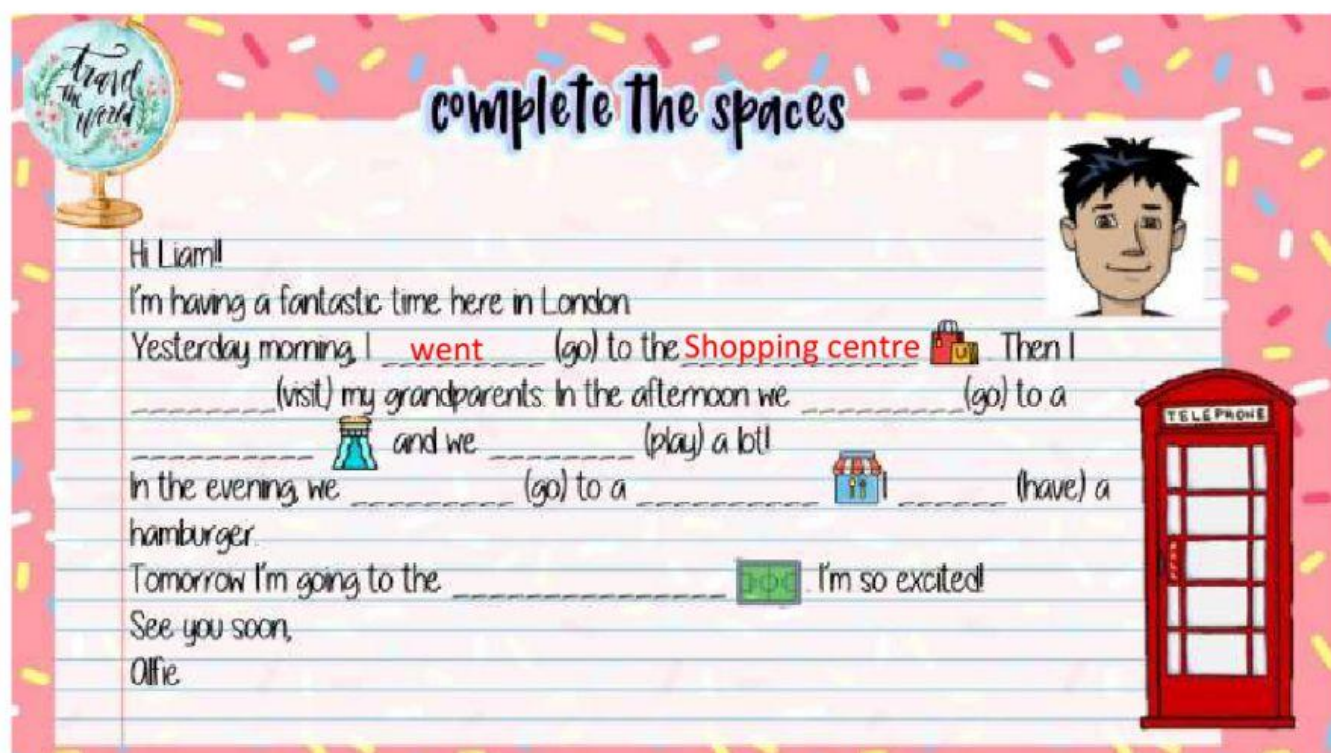 travel
the
world
complete the spaces
Hi Liam!!
I'm having a fantastic time here in London
Yesterday morning, I went (go) to the Shopping centre . Then I
_________(visit) my grandparents. In the afternoon we __________(go) to a
___________ and we _________ (play) a lot!
In the evening, we __________ (go) to a ___________ I _______ (have) a
hamburger.
Tomorrow I'm going to the ________________ . I'm so excited!
See you soon,
Alfie
TELEPHONE